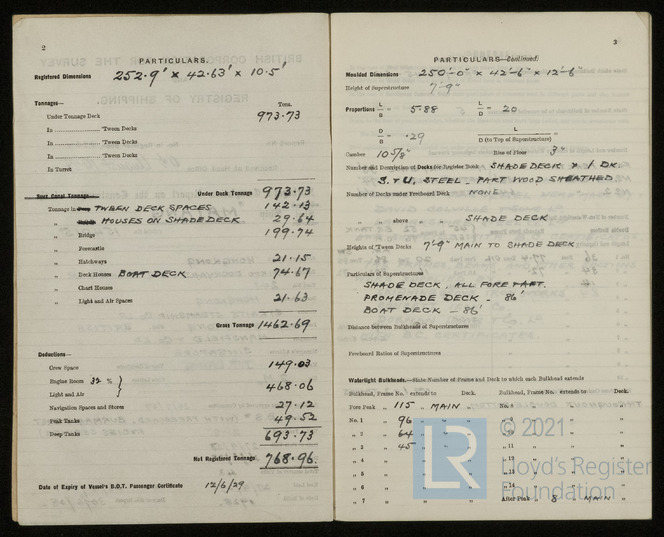 2
PARTICULARS.
Registered Dimensions 252.9' × 42.63' × 10.5'
Tonnages—
Tons.
Under Tonnage Deck 973.73
In ............ 'Tween Decks
In ............ 'Tween Decks
In ............ 'Tween Decks
In Turret
Under Deck Tonnage 973.73
Tonnage in TWEEN DECK SPACES 142.13
„ HOUSES ON SHADE DECK 29.64
„ Bridge 199.74
„ Forecastle
„ Hatchways 21.15
„ Deck Houses BOAT DECK 74.67
„ Chart Houses
„ Light and Air Spaces 21.63
Gross Tonnage 1462.69
Deductions—
Crew Space 149.03
Engine Room 32 % }
Light and Air } 468.06
Navigation Spaces and Stores 27.12
Peak Tanks 49.52
Deep Tanks 693.73
Net Registered Tonnage 768.96
Date of Expiry of Vessel's B.O.T. Passenger Certificate 12/6/29
3
PARTICULARS—Continued.
Moulded Dimensions 250'-0" × 42'-6" × 12'-6"
Height of Superstructure 7'-9"
Proportions L/B = 5.88 L/D = 20
D/B = .29 L/D (to Top of Superstructure)
Camber 10 5/8" Rise of Floor 3"
Number and Description of Decks for Register Book SHADE DECK & 1 DK.
S. & U. STEEL. PART WOOD SHEATHED
Number of Decks under Freeboard Deck NONE
„ „ above „ „ SHADE DECK
Heights of 'Tween Decks 7'-9" MAIN TO SHADE DECK
Particulars of Superstructures
SHADE DECK. ALL FORE & AFT.
PROMENADE DECK - 86'
BOAT DECK - 86'
Distance between Bulkheads of Superstructures
Freeboard Ratios of Superstructures
Watertight Bulkheads.—State Number of Frame and Deck to which each Bulkhead extends
Bulkhead, Frame No. extends to Deck. Bulkhead, Frame No. extends to Deck.
Fore Peak „ 115 „ MAIN No. 8 „ „
No. 1 96 „ „ 9 „ „
„ 2 64 „
„ 3 45 „ „ 11 „
„ 4
„ 5 „ 13
„ 6 „ 14
„ 7 After Peak „ 8 MAIN „
LR © 2021
Lloyd's Register
Foundation